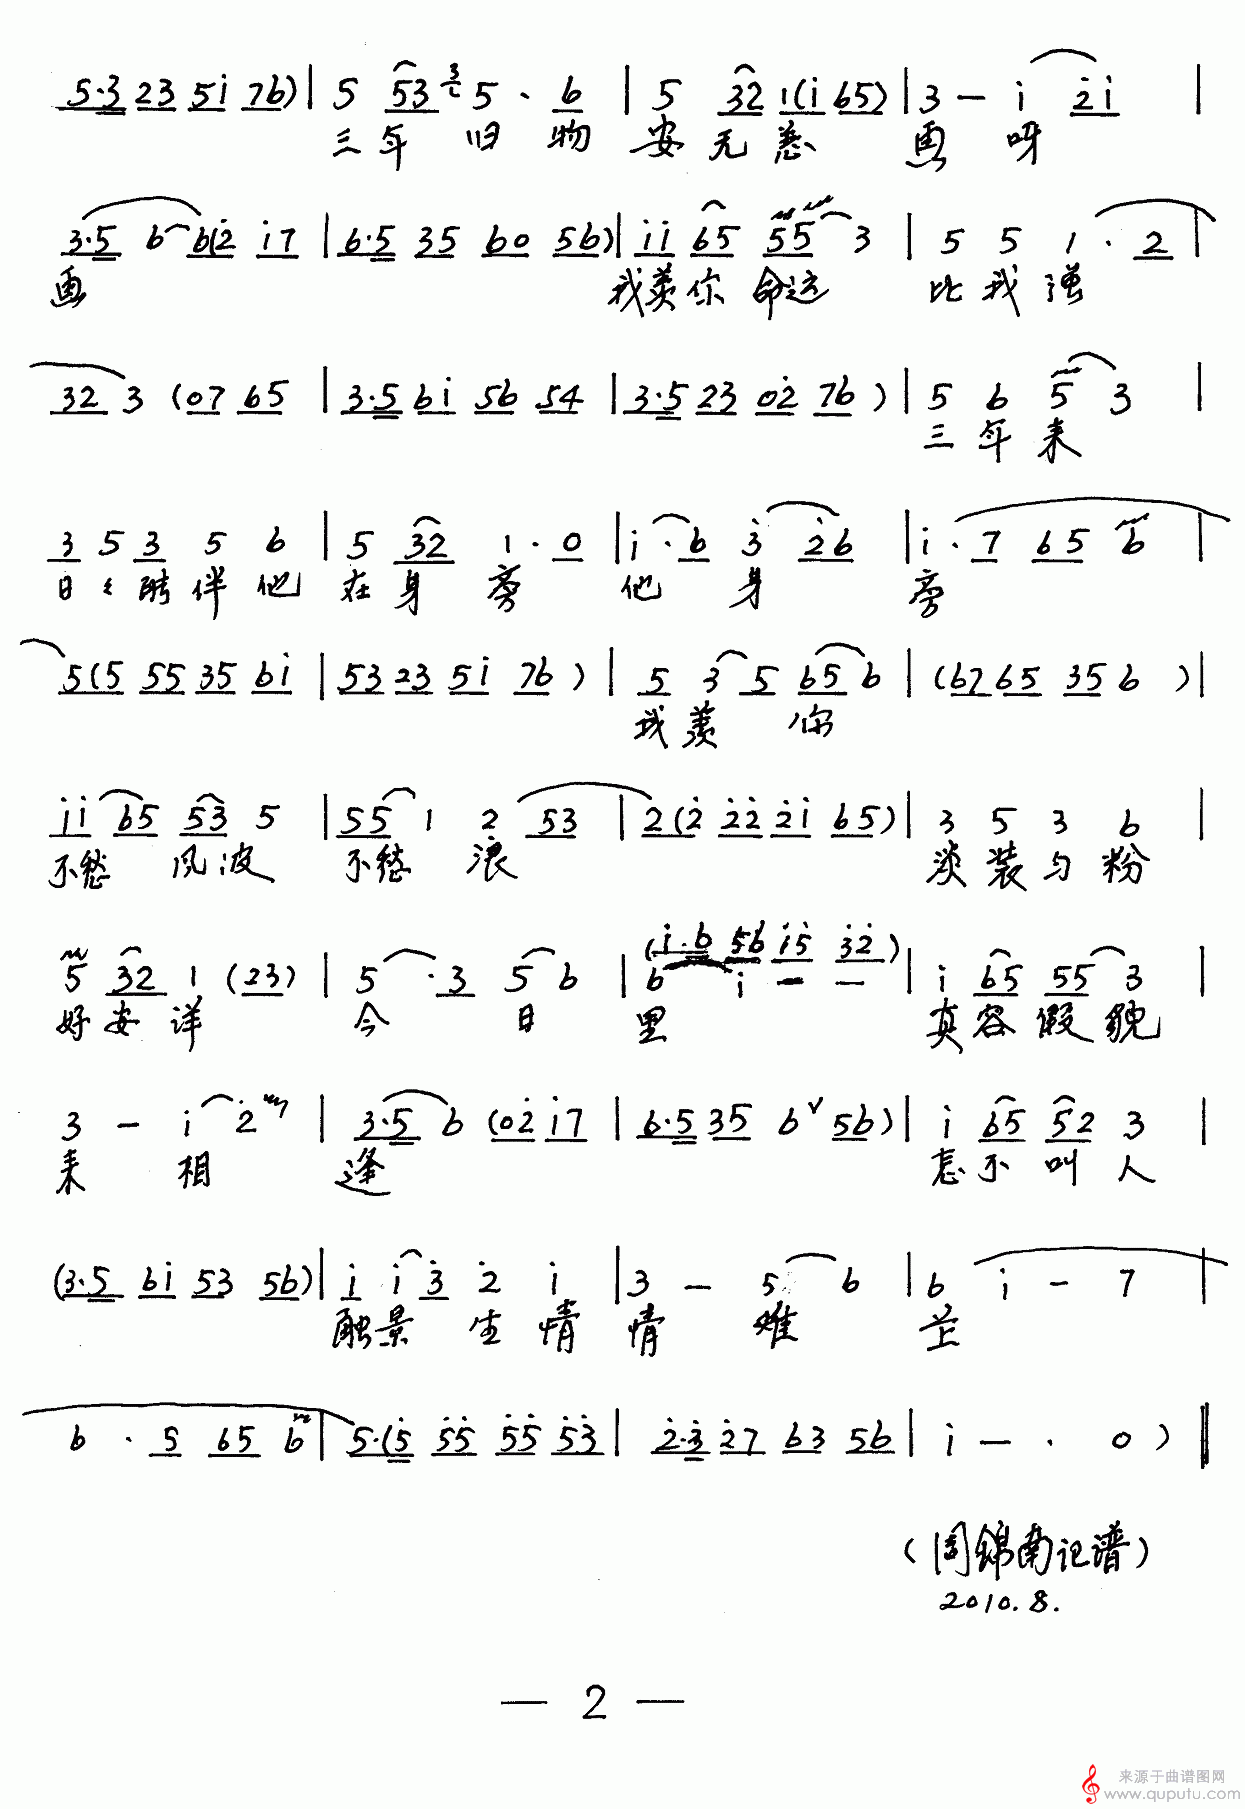 5·3 23 5i 76) | 5 53 3 5 · 6 | 5 32 1(i 65) | 3 — i 2i |
三年 旧 物 安无恙 画 呀
3·5 6 6(2 i7 | 6·5 35 60 56) | ii 65 55 3 | 5 5 1 · 2 |
画 我羡你 命运 比我强
32 3 (07 65 | 3·5 6i 56 54 | 3·5 23 02 76 ) | 5 6 5 3 |
三年来
3 5 3 5 6 | 5 32 1 · 0 | i · 6 3 26 | i · 7 65 6 |
日々醉伴他 在身 旁 他 身 旁
5(5 55 35 6i | 53 23 5i 76 ) | 5 3 5 65 6 | (67 65 35 6 ) |
我羡 你
ii 65 53 5 | 55 1 2 53 | 2(2 22 2i 65) | 3 5 3 6 |
不愁 风波 不愁 浪 淡装与粉
(i·6 56 i5 32)
5 32 1 (23) | 5 · 3 5 6 | 6 i — — | i 65 55 3 |
好安详 今 日 里 真容假貌
3 — i 2 | 3·5 6 (02 i7 | 6·5 35 6 56) | i 65 52 3 |
来 相 逢 怎不叫人
(3·5 6i 53 56) | i i 3 2 i | 3 — 5 6 | 6 i — 7 |
触景 生情 情 难 芷
6 · 5 65 6 | 5·(5 55 55 53 | 2·3 27 63 56 | i — · 0 ) ‖
(周锦南记谱)
2010.8.
— 2 —
来源于曲谱图网
www.quputu.com